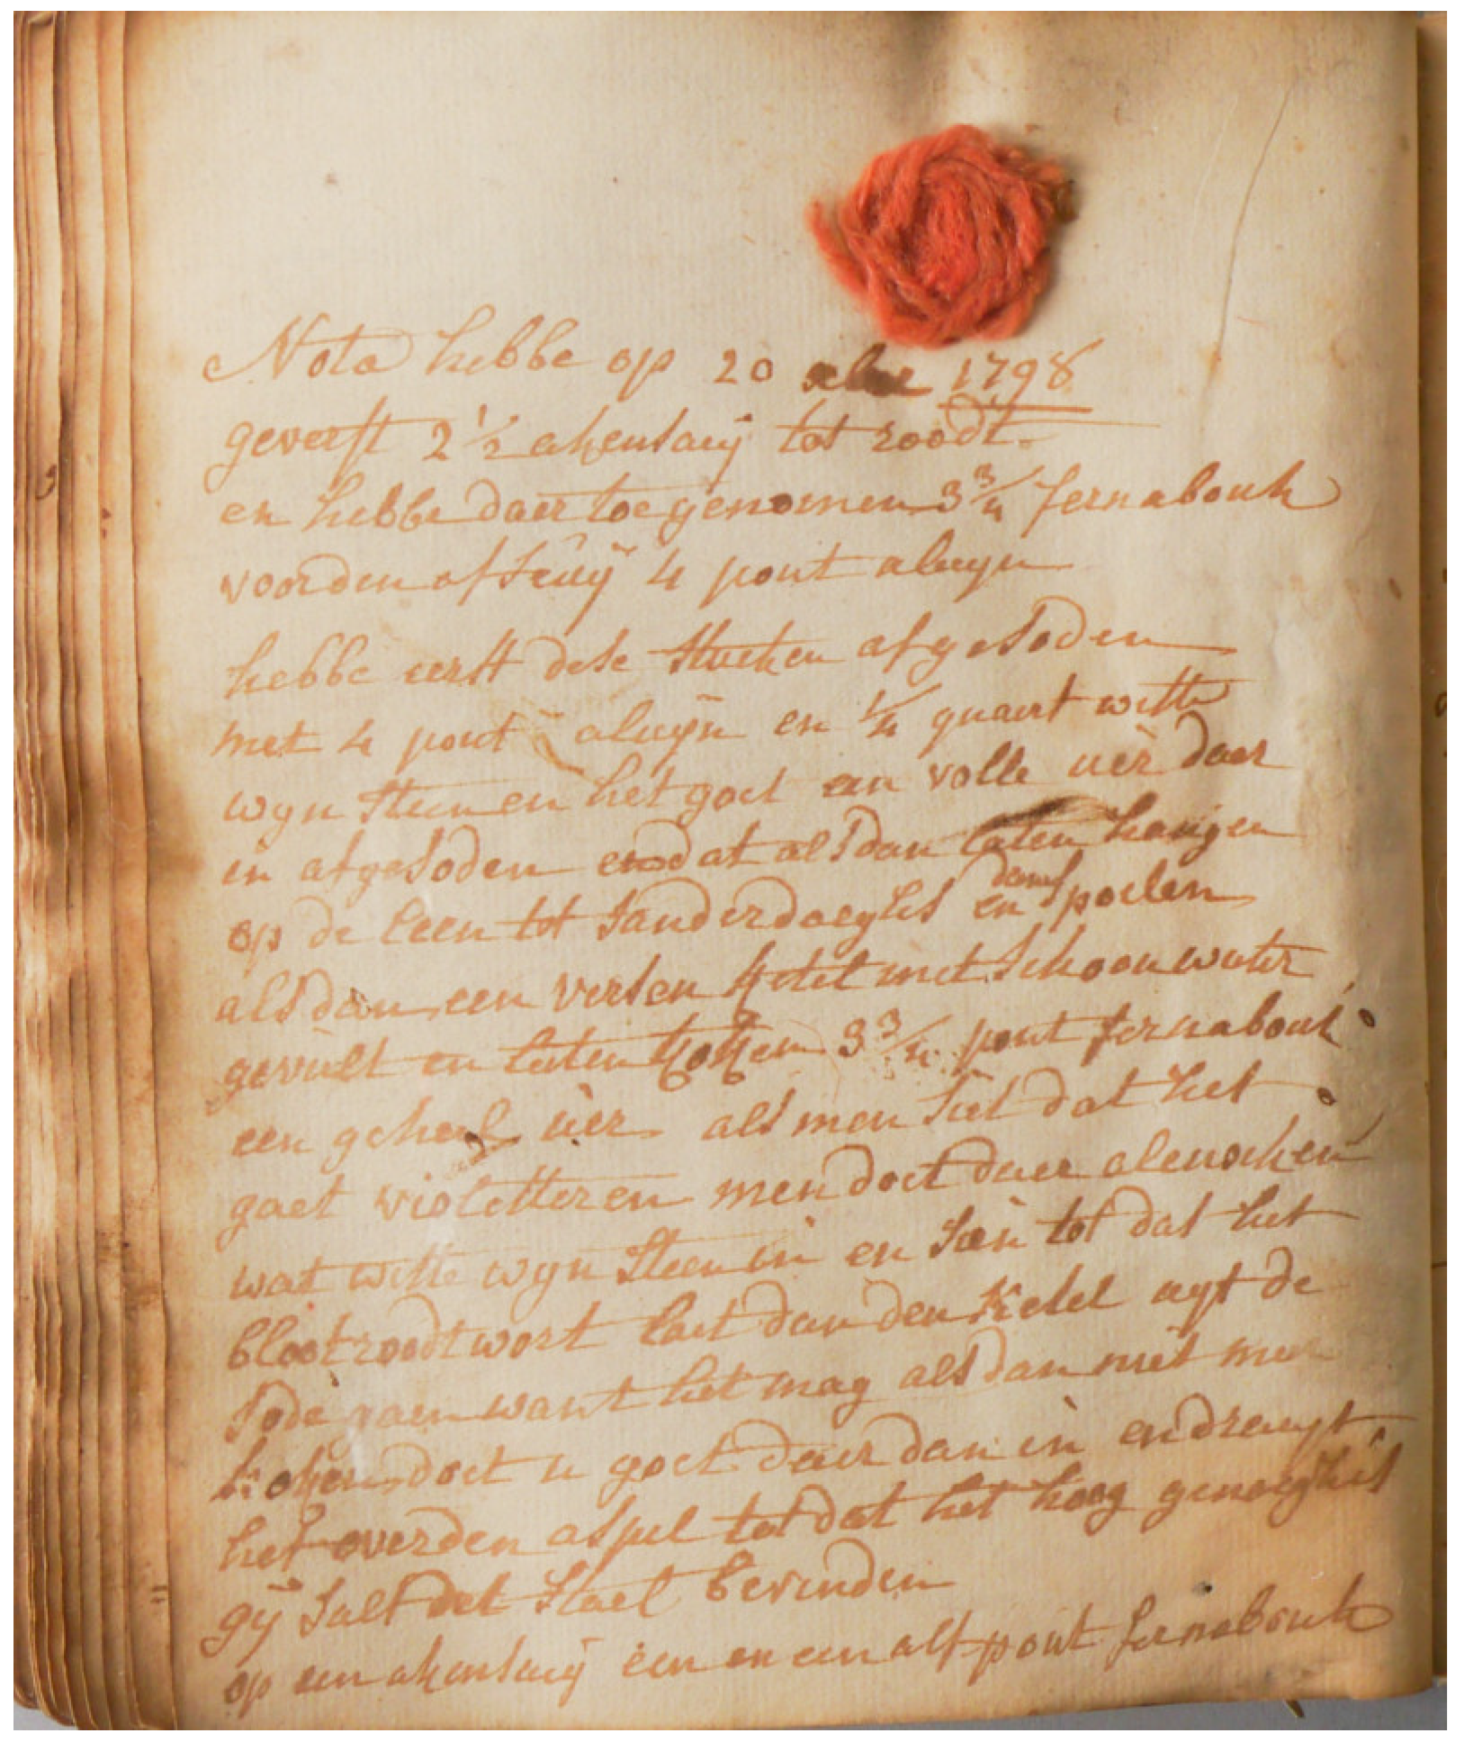 Nota hebbe op 20 1798
geverft 2 1/2 akensaeij tot roodt
en hebbe daer toe genomen 3 3/4 fernabouk
voorden afseüÿ 4 pont aluyn
hebbe eerst dese stucken afgesoden
met 4 pont aluyn en 1/4 quaert witte
wyn steen en het goet een volle uer daer
in afgesoden en dat alsdan laten hangen
op de leen tot sanderdaeghs en danof spoelen
alsdan een versen ketel met schoon water
gevult en laten koken 3 3/4 pont fernabouk
een geheel uer als men siet dat het
gaet violetteren men doet daer alenocken
wat witte wyn steen in en sien tot dat het
bloetroodt wort laet dan den ketel uyt de
sode gaen want het mag alsdan niet meer
koken doet u goet daer dan in en dreuyt
het over den aspel tot dat het hoog genoegh is
gÿ salt det stael bevinden
op een akensaeij een en een alf pont fernabouk